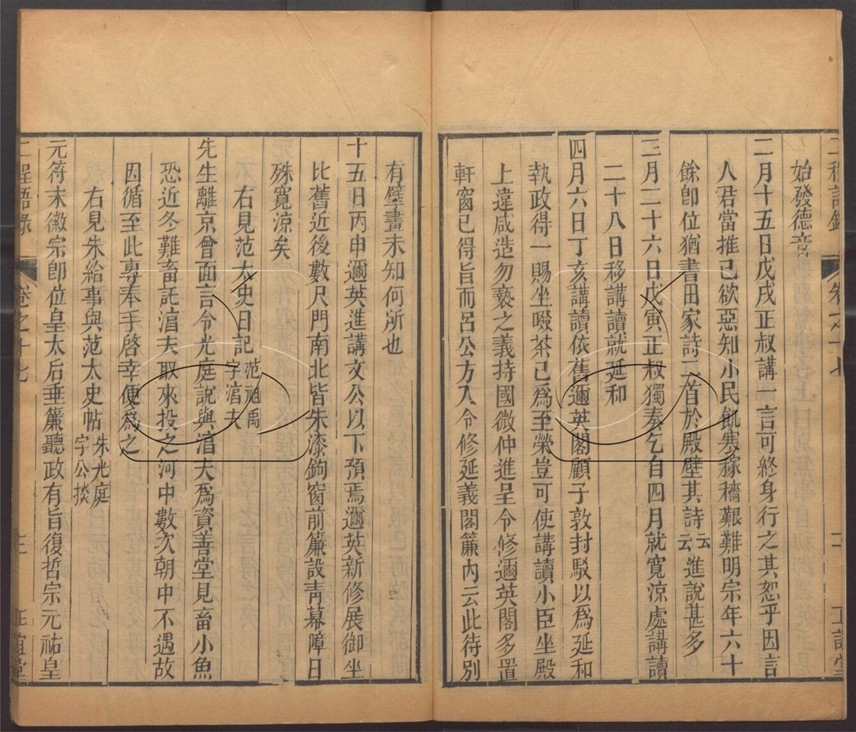 始發德音
二月十五日戊戌正叔講一言可終身行之其恕乎因言
人君當推己欲惡知小民飢寒稼穡艱難明宗年六十
餘卽位猶書田家詩二首於殿壁其詩云云進說甚多
三月二十六日戊寅正叔獨奏乞自四月就寬涼處講讀
二十八日移講讀就延和
四月六日丁亥講讀依舊邇英閣顧子敦封駁以爲延和
執政得一賜坐啜茶已爲至榮豈可使講讀小臣坐殿
上違咸造勿褻之義持國微仲進呈令修邇英閣多置
軒窗已得旨而呂公方入令修延義閣簾內云此待別
有擘畫未知何所也
十五日丙申邇英進講文公以下預焉邇英新修展御坐
比舊近後數尺門南北皆朱漆鉤窗前簾設靑幕障日
殊寬涼矣
右見范太史日記范祖禹字淳夫
先生離京曾面言令光庭說與淳夫爲資善堂見畜小魚
恐近冬難畜託淳夫取來投之河中數次朝中不遇故
因循至此專奉手啓幸便爲之
右見朱給事與范太史帖朱光庭字公掞
元符末徽宗卽位皇太后垂簾聽政有旨復哲宗元祐皇
二程語錄
卷之十七
正誼堂